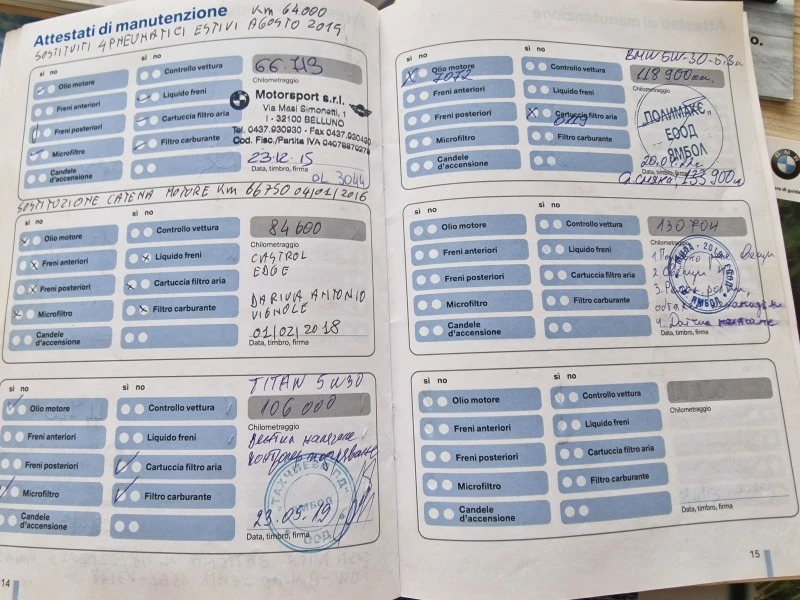 Attestati di manutenzione
Km 64000
SOSTITUITI 4 PNEUMATICI ESTIVI AGOSTO 2015
sì no
sì no
Olio motore
Controllo vettura
66.713
Chilometraggio
Freni anteriori
Liquido freni
Motorsport s.r.l.
Via Masi Simonetti, 1
I - 32100 BELLUNO
Freni posteriori
Cartuccia filtro aria
Tel. 0437.930930 - Fax 0437.930430
Microfiltro
Filtro carburante
Cod. Fisc./Partita IVA
23.12.15
Candele
d'accensione
Data, timbro, firma
OL 3044
SOSTITUZIONE CATENA MOTORE Km 66750 04/01/2016
sì no
sì no
Olio motore
Controllo vettura
84600
Chilometraggio
Freni anteriori
Liquido freni
CASTROL
EDGE
Freni posteriori
Cartuccia filtro aria
DARIVA ANTONIO
VIGNOLE
Microfiltro
Filtro carburante
01/02/2018
Candele
d'accensione
Data, timbro, firma
TITAN 5W30
sì no
sì no
Olio motore
Controllo vettura
106 000
Chilometraggio
Freni anteriori
Liquido freni
Freni posteriori
Cartuccia filtro aria
Microfiltro
Filtro carburante
ЯМБОЛ
ООД
23.05.19
Candele
d'accensione
Data, timbro, firma
14
BMW 5W-30
sì no
sì no
Olio motore
7072
Controllo vettura
118 900км.
Chilometraggio
Freni anteriori
Liquido freni
Freni posteriori
Cartuccia filtro aria
„ПОЛИМАКС"
ЕООД
ЯМБОЛ
Microfiltro
Filtro carburante
Candele
d'accensione
Data, timbro, firma
Сл. смяна 133 900
sì no
sì no
Olio motore
Controllo vettura
130704
Chilometraggio
Freni anteriori
Liquido freni
Freni posteriori
Cartuccia filtro aria
ЯМБОЛ
Microfiltro
Filtro carburante
4. Датчик
Candele
d'accensione
Data, timbro, firma
sì no
sì no
Olio motore
Controllo vettura
Chilometraggio
Freni anteriori
Liquido freni
Freni posteriori
Cartuccia filtro aria
Microfiltro
Filtro carburante
Candele
d'accensione
Data, timbro, firma
15